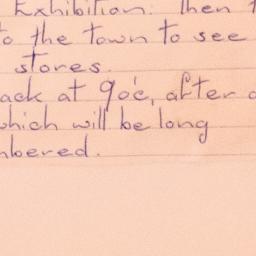 Exhibition. Then
to the town to see
stores.
ack at 9o'c, after
which will be long
mbered.